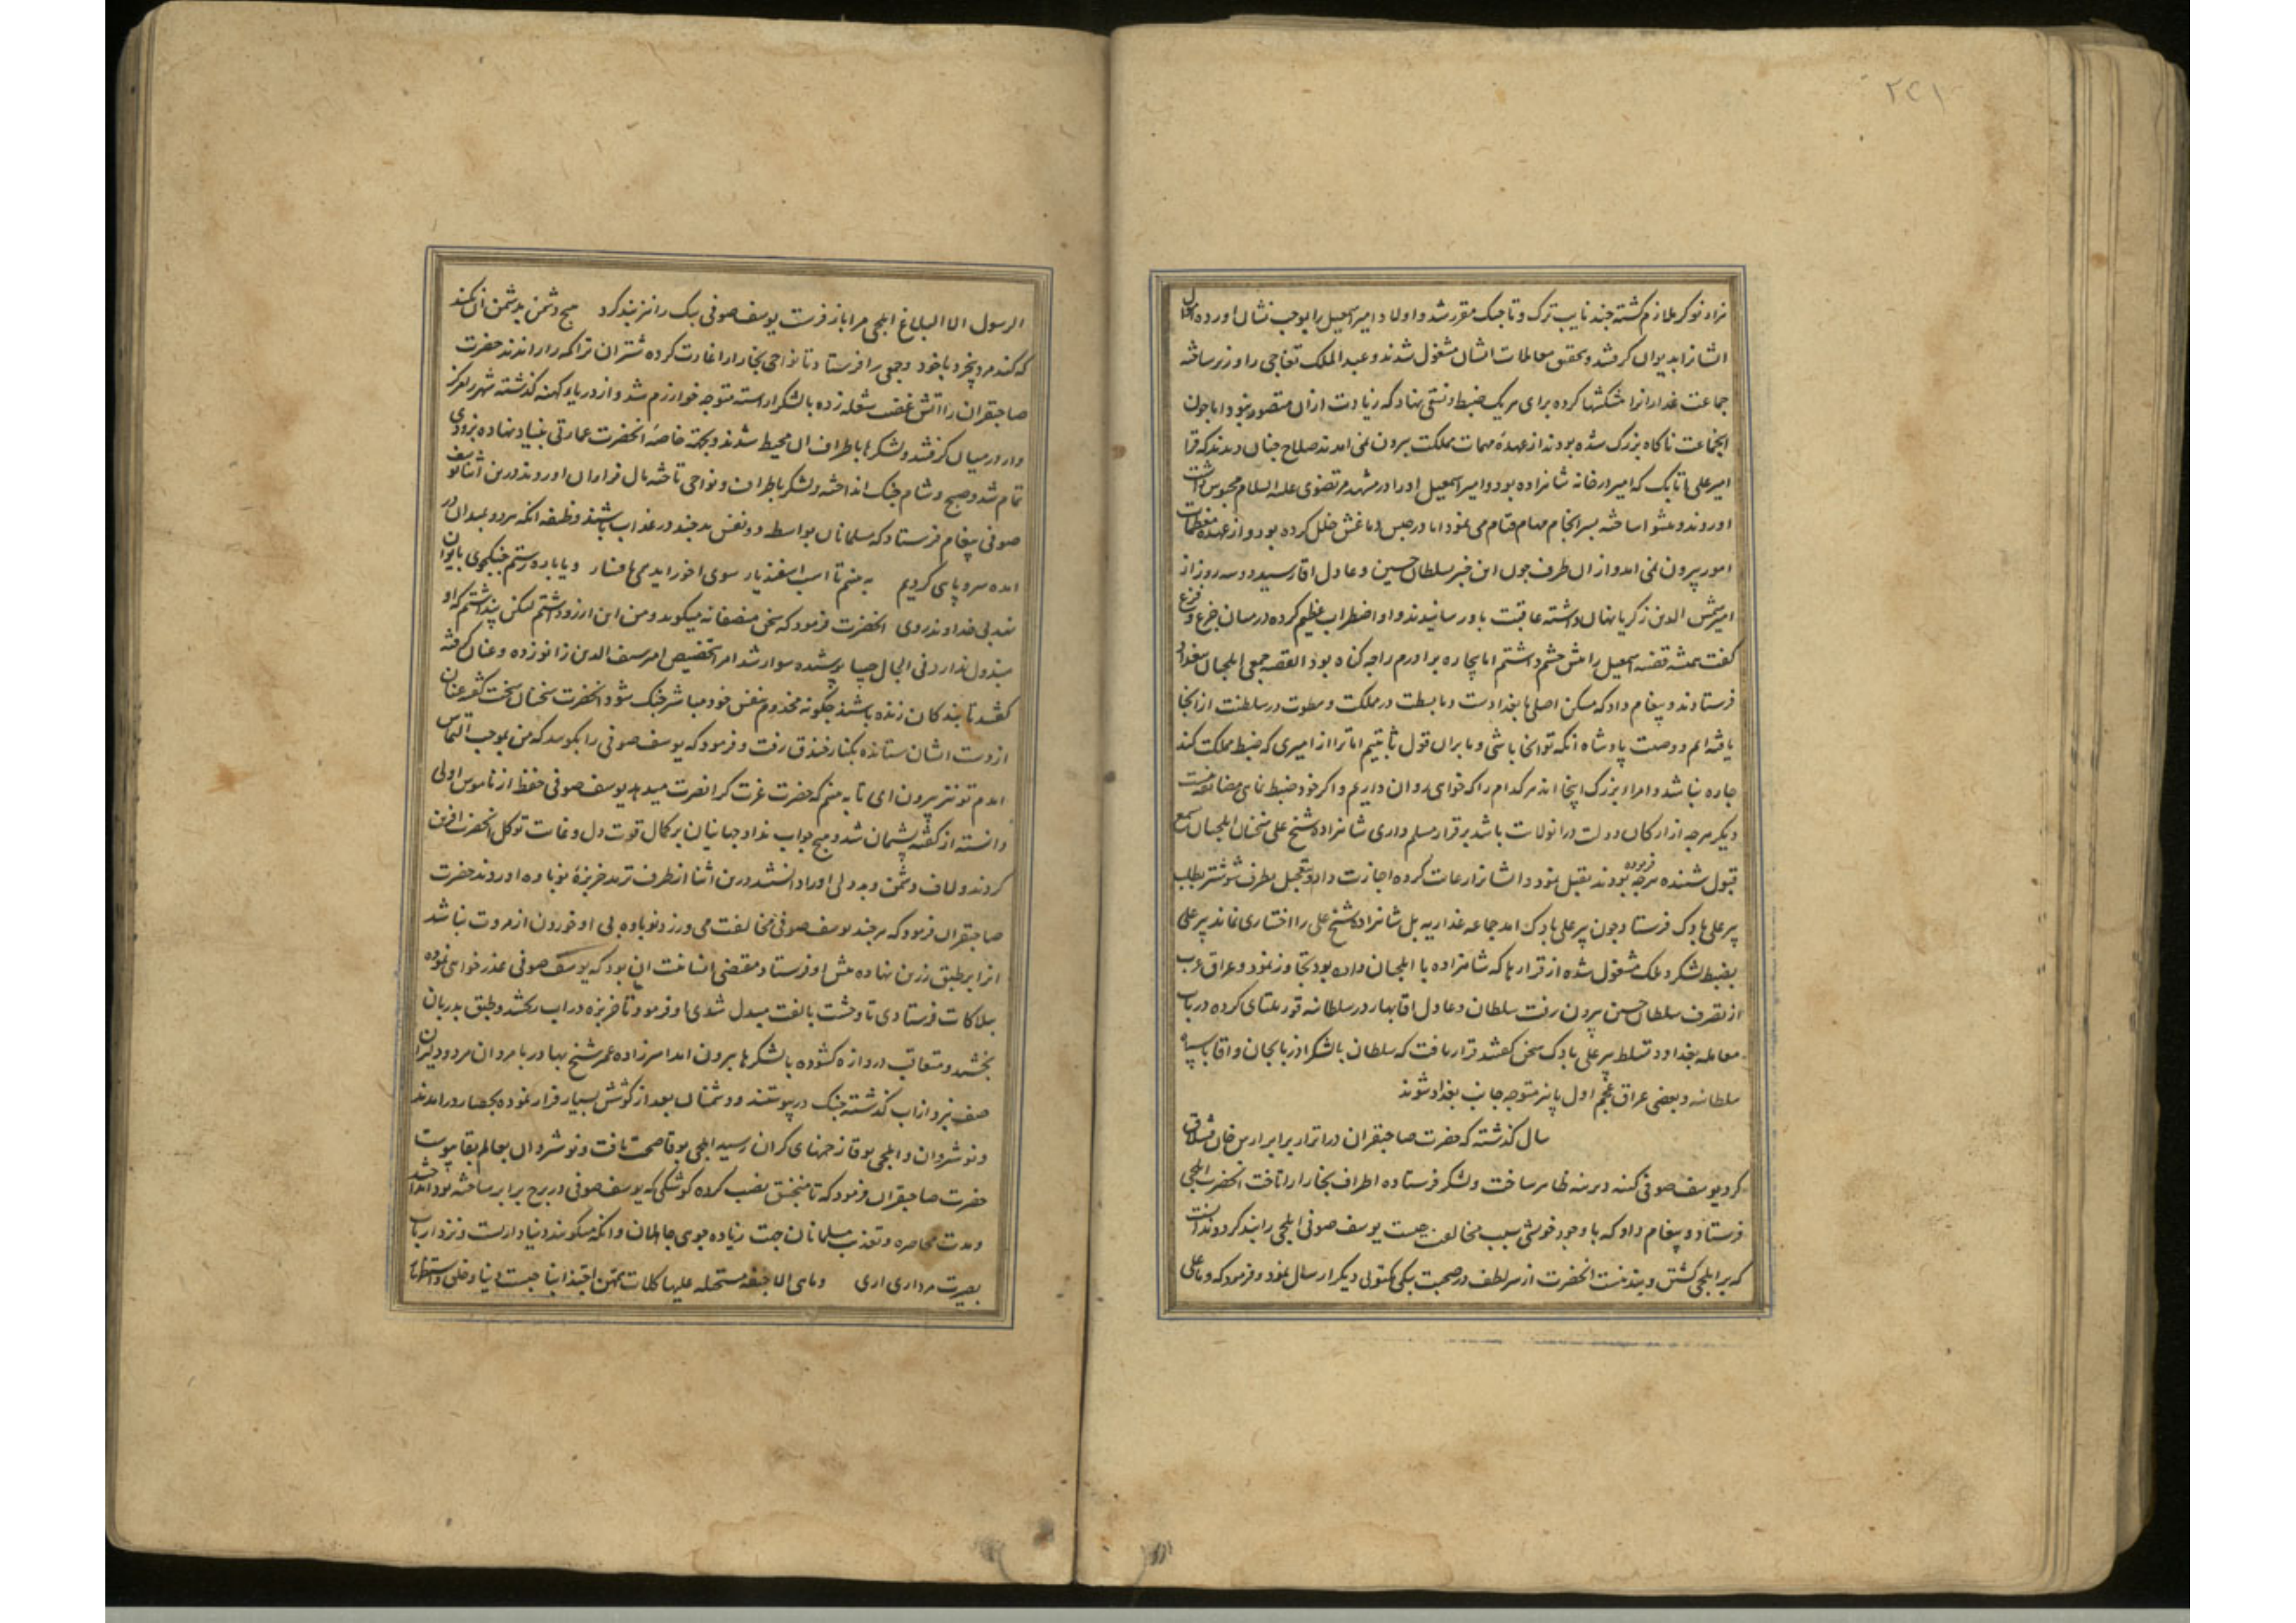 ۲۲۱
نراد نوکر ملازم کشته چند نایب ترک و تاجیک مقرر شد و اولاد امیر اسمعیل را بوجب نشان اورده اموال
ایشانرا بدیوان کرفتند و بتحقیق معاملات ایشان مشغول شدند و عبد الملک تمغاجی را وزیر ساخته
جماعت غدارانرا شکنجها کرده برای هریک ضبط و نسقی نهاد که زیادت ازان متصور نبود اما چون
اینجماعت ناکاه بزرک شده بودند از عهدهٔ مهمات مملکت بیرون نمی امدند صلاح چنان دیدند که قرا
امیر علی اتابک که امیر ارخانه شاهزاده بود و امیر اسمعیل او را در مشهد مرتضوی علیه السلام محبوس داشت
اوروند و پیشوا ساخته بسر انجام مهام قیام می نمود اما در حبس دماغش خلل کرده بود و از عهده معظمات
امور بیرون نمی امد و از ان طرف چون این خبر بسلطان حسین و عادل اقا رسید دو سه روز از
امیر شمس الدین زکریا پنهان داشته عاقبت باو رسانیدند و او اضطراب عظیم کرده در میان جزع و فزع
کفت همیشه قضیه اسمعیل را پیش چشم داشتم اما بیچاره برادرم را چه کناه بود القصه جمعی ایلچیان ببغداد
فرستادند و پیغام داد که مسکن اصلی ما بغدادست و ما بسطت در مملکت و سطوت در سلطنت از انجا
یافته ایم و وصیت پادشاه انکه تو انجا باشی و ما بران قول ثابتیم اما ترا از امیری که ضبط مملکت کند
چاره نباشد و امرا بزرک اینجا اند هرکدام را که خواهی روان داریم و اکر خود ضبط نمایی مضایقه نیست
دیکر هرچه از ارکان دولت در انولایت باشد برقرار مسلم داری شاهزاده شیخ علی سخنان ایلچیان بسمع
قبول شنیده هرچه فرموده بودند تقبل نمود و ایشانرا رعایت کرده اجازت داد و بتعجیل بطرف شوشتر بطلب
پیر علی بادک فرستاد و چون پیر علی بادک امد جماعه غداریه بل شاهزاده شیخ علی را اختیاری نماند پیر علی
بضبط لشکر و ملک مشغول شده از قرارها که شاهزاده با ایلچیان داده بود تجاوز نمود و عراق عرب
از تصرف سلطان حسین بیرون رفت سلطان و عادل اقا بهار در سلطانیه قوریلتای کرده در باب
معامله بغداد و تسلط پیر علی بادک سخن کفتند قرار یافت که سلطان با لشکر اذربایجان و اقا با سپاه
سلطانیه و بعضی عراق عجم اول پاییز متوجه جانب بغداد شوند
سال کذشته که حضرت صاحبقران در اترار برابر ارس خان قشلاق
کرد یوسف صوفی کینه دیرینه ظاهر ساخت و لشکر فرستاده اطراف بخارا را تاخت انحضرت ایلچی
فرستاد و پیغام داد که با وجود خویشی سبب مخالفت چیست یوسف صوفی ایلچی را بند کرد و ندانست
که بر ایلچی کشتن و بند نیست انحضرت از سر لطف در صحبت پیکی مکتوبی دیکر ارسال نمود و فرمود که و ما علی
الرسول الا البلاغ ایلچی مرا باز فرست یوسف صوفی پیک را نیز بند کرد هیچ دشمن بدشمن ان نکند
که کند مرد بیخرد با خود و جمعی را فرستاد تا نواحی بخارا را غارت کرده شتران تراکمه را راندند حضرت
صاحبقران را اتش غضب شعله زده با لشکر اراسته متوجه خوارزم شد و از دریا و کهنه کذشته شهر را
در میان کرفتند و لشکرها باطراف ان محیط شدند و بجهة خاصه انحضرت عمارتی بنیاد نهاده بزودی
تمام شد و صبح و شام جنک انداخته و لشکر باطراف و نواحی تاخته مال فراوان اوردند درین اثنا یوسف
صوفی پیغام فرستاد که مسلمانان بواسطه دو نفس بد چند در عذاب باشند وظیفه انکه هر دو بمیدان در
امده سر و پای کردیم ببینیم تا اسب اسفندیار سوی اخور اید همی بی سوار و یا باره رستم جنکجوی بایوان
نهد بی خداوند روی انحضرت فرمود که سخن منصفانه میکوید و من این ارزو داشتم لیکن پنداشتم که او
مبذول ندارد فی الحال جیبا پوشیده سوار شد امرا بتخصیص امیر سیف الدین زانو زده و عنان کرفته
کفتند تا بندکان زنده باشند چکونه مخدوم بنفس خود مباشر جنک شود انحضرت سخنان سخت کفته عنان
از دست ایشان ستانده بکنار خندق رفت و فرمود که یوسف صوفی را بکویید که من بموجب التماس
امدم تو نیز بیرون ای تا ببینیم که حضرت عزت کرا نصرت میدهد یوسف صوفی حفظ از ناموس اولی
دانسته از کفته پشیمان شد و هیچ جواب نداد جهانیان بر کمال قوت دل و غایت توکل انحضرت افرین
کردند و لاف دشمن و بددلی او را دانستند درین اثنا از طرف ترمد خربزهٔ نوباوه اوردند حضرت
صاحبقران فرمود که هرچند یوسف صوفی مخالفت می ورزد نوباوه بی او خوردن از مروت نباشد
انرا بر طبق زرین نهاده پیش او فرستاد مقتضی انسانیت ان بود که یوسف صوفی عذر خواهی نموده
بیلاکات فرستادی تا وحشت بالفت مبدل شدی او فرمود تا خربزه در اب ریختند و طبق بدربان
بخشید و متعاقب دروازه کشوده با لشکرها بیرون امد امیرزاده عمر شیخ بهادر با مردان مرد و دلیران
صف نبرد از اب کذشته جنک در پیوستند و دشمنان بعد از کوشش بسیار فرار نموده بحصار در امدند
و نوشروان و ایلچی بوقا زخمهای کران رسید ایلچی بوقا صحت یافت و نوشروان بعالم بقا پیوست
حضرت صاحبقران فرمود که تا منجنیق نصب کرده کوشکی که یوسف صوفی در برج برابر ساخته بود انداختند
و مدت محاصره و تعذیب مسلمانان جهت زیاده جویی جاهلان و انکه میکویند دنیا دارست و نزد ارباب
بصیرت مرداری اری و ما هی الا جیفة مستحیلة علیها کلاب همهن اجتذابها چیست دنیا و خلق و استظهار